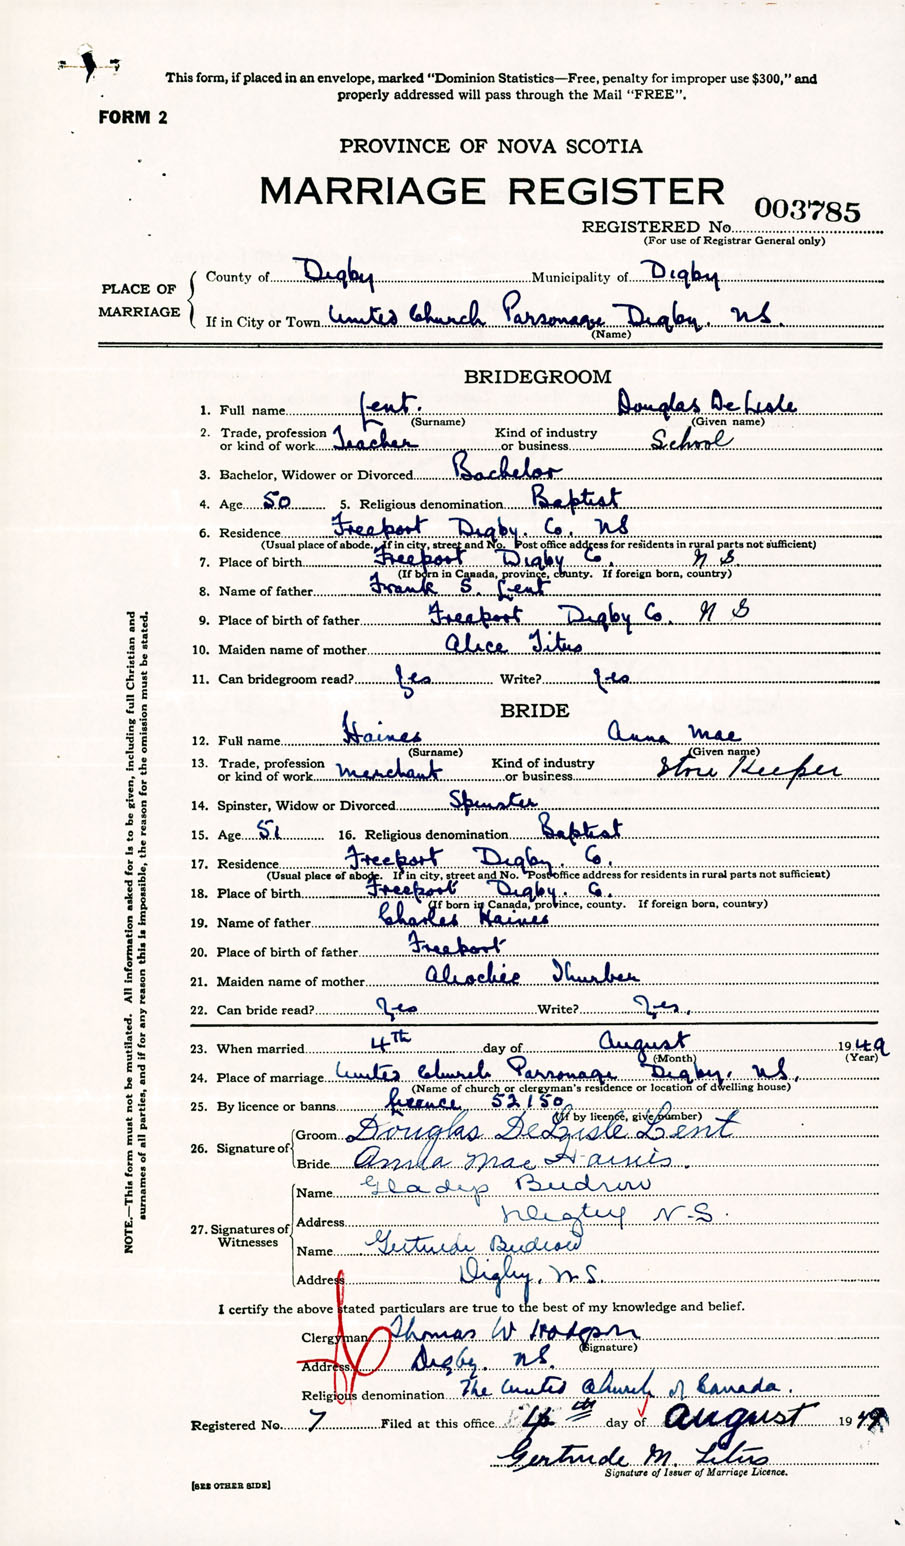 This form, if placed in an envelope, marked "Dominion Statistics—Free, penalty for improper use $300," and
properly addressed will pass through the Mail "FREE".
FORM 2
PROVINCE OF NOVA SCOTIA
MARRIAGE REGISTER
003785
REGISTERED No.
(For use of Registrar General only)
PLACE OF MARRIAGE
County of Digby Municipality of Digby
If in City or Town United Church Parsonage Digby. N.S.
(Name)
BRIDEGROOM
1. Full name Lent. Douglas DeLisle
(Surname) (Given name)
2. Trade, profession or kind of work Teacher Kind of industry or business School
3. Bachelor, Widower or Divorced Bachelor
4. Age 50 5. Religious denomination Baptist
6. Residence Freeport Digby. Co. NS
(Usual place of abode. If in city, street and No. Post office address for residents in rural parts not sufficient)
7. Place of birth Freeport Digby Co. N S
(If born in Canada, province, county. If foreign born, country)
8. Name of father Frank S. Lent
9. Place of birth of father Freeport Digby Co. N S
10. Maiden name of mother Alice Titus
11. Can bridegroom read? Yes Write? Yes
BRIDE
12. Full name Haines Anna Mae
(Surname) (Given name)
13. Trade, profession or kind of work Merchant Kind of industry or business Store Keeper
14. Spinster, Widow or Divorced Spinster
15. Age 51 16. Religious denomination Baptist
17. Residence Freeport Digby. Co.
(Usual place of abode. If in city, street and No. Post office address for residents in rural parts not sufficient)
18. Place of birth Freeport Digby. Co.
(If born in Canada, province, county. If foreign born, country)
19. Name of father Charles Haines
20. Place of birth of father Freeport
21. Maiden name of mother Thurber
22. Can bride read? Yes Write? Yes.
23. When married 4th day of August 1949
(Month) (Year)
24. Place of marriage United Church Parsonage Digby. N.S.
(Name of church or clergyman's residence or location of dwelling house)
25. By licence or banns licence 52150
(If by licence, give number)
26. Signature of
Groom Douglas DeLisle Lent
Bride Anna Mae Haines.
27. Signatures of Witnesses
Name Gladys Budrow
Address Digby N-S.
Name Gertrude Budrow
Address Digby. N.S.
I certify the above stated particulars are true to the best of my knowledge and belief.
Clergyman Thomas W Hodgson
(Signature)
Address Digby. NS.
Religious denomination The United Church of Canada.
Registered No. 7 Filed at this office 4th day of August 1949
Gertrude M. Titus
Signature of Issuer of Marriage Licence.
[SEE OTHER SIDE]
NOTE.—This form must not be mutilated. All information asked for is to be given, including full Christian and
surnames of all parties, and if for any reason this is impossible, the reason for the omission must be stated.